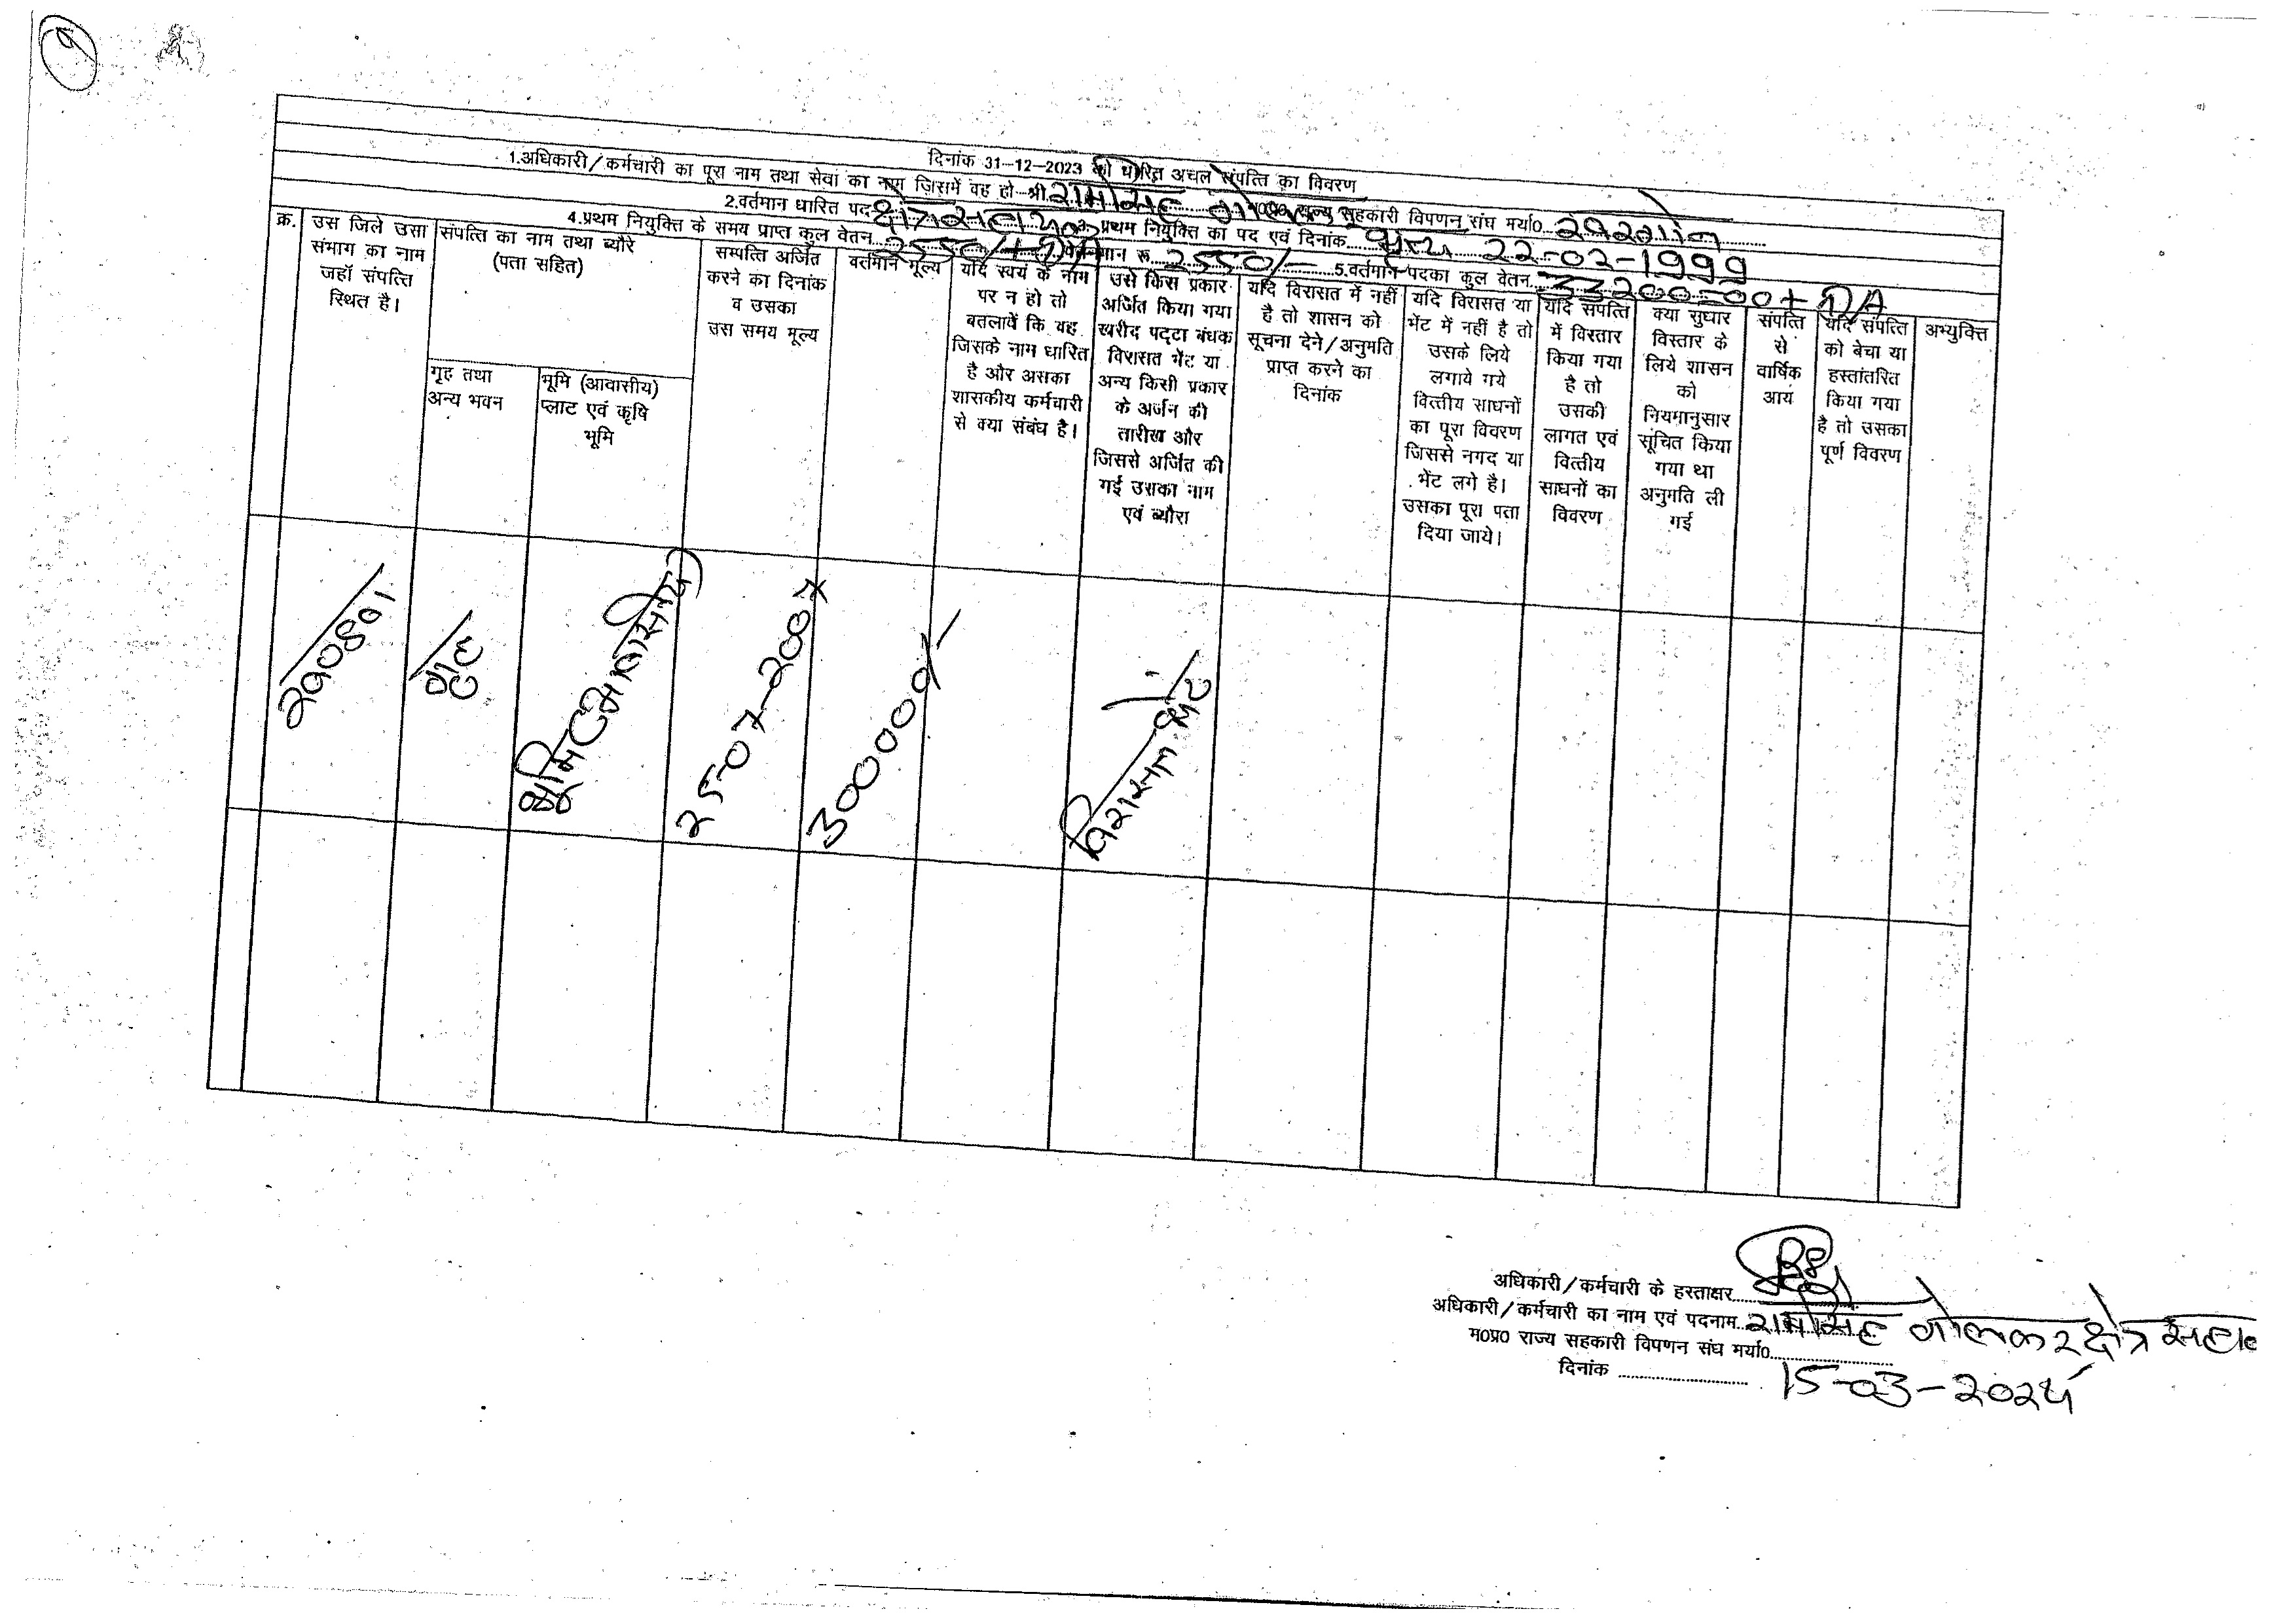 १
दिनांक 31-12-2023 की धारित अचल संपत्ति का विवरण
1.अधिकारी/कर्मचारी का पूरा नाम तथा सेवा का नाम जिसमें वह हो-श्री रामसिंह गोलकर म0प्र0 राज्य सहकारी विपणन संघ मर्या0 खरगोन
2.वर्तमान धारित पद क्षेत्र सहायक 3. प्रथम नियुक्ति का पद एवं दिनांक भृत्य 22-02-1999
4.प्रथम नियुक्ति के समय प्राप्त कुल वेतन 2550/+D/A वेतनमान रू. 2550/- 5.वर्तमान पदका कुल वेतन 33200=00+D/A
क्र.
उस जिले उसा
संभाग का नाम
जहॉं संपत्ति
स्थित है।
संपत्ति का नाम तथा ब्यौरे
(पता सहित)
गृह तथा
अन्य भवन
भूमि (आवासीय)
प्लाट एवं कृषि
भूमि
सम्पत्ति अर्जित
करने का दिनांक
व उसका
उस समय मूल्य
वर्तमान मूल्य
यदि स्वयं के नाम
पर न हो तो
बतलावें कि वह
जिसके नाम धारित
है और असका
शासकीय कर्मचारी
से क्या संबंध है।
उसे किस प्रकार
अर्जित किया गया
खरीद पट्टा बंधक
विरासत भेंट या
अन्य किसी प्रकार
के अर्जन की
तारीख और
जिससे अर्जित की
गई उसका नाम
एवं ब्यौरा
यदि विरासत में नहीं
है तो शासन को
सूचना देने/अनुमति
प्राप्त करने का
दिनांक
यदि विरासत या
भेंट में नहीं है तो
उसके लिये
लगाये गये
वित्तीय साधनों
का पूरा विवरण
जिससे नगद या
भेंट लगे है।
उसका पूरा पता
दिया जाये।
यदि संपत्ति
में विस्तार
किया गया
है तो
उसकी
लागत एवं
वित्तीय
साधनों का
विवरण
क्या सुधार
विस्तार के
लिये शासन
को
नियमानुसार
सूचित किया
गया था
अनुमति ली
गई
संपत्ति
से
वार्षिक
आय
यदि संपत्ति
को बेचा या
हस्तांतरित
किया गया
है तो उसका
पूर्ण विवरण
अभ्युक्ति
गृह
भूमि आवासीय
25-07-2007
300000/-
विरासत भेंट
अधिकारी/कर्मचारी के हस्ताक्षर
अधिकारी/कर्मचारी का नाम एवं पदनाम रामसिंह गोलकर क्षेत्र सहा०
म0प्र0 राज्य सहकारी विपणन संघ मर्या0
दिनांक 15-03-2024